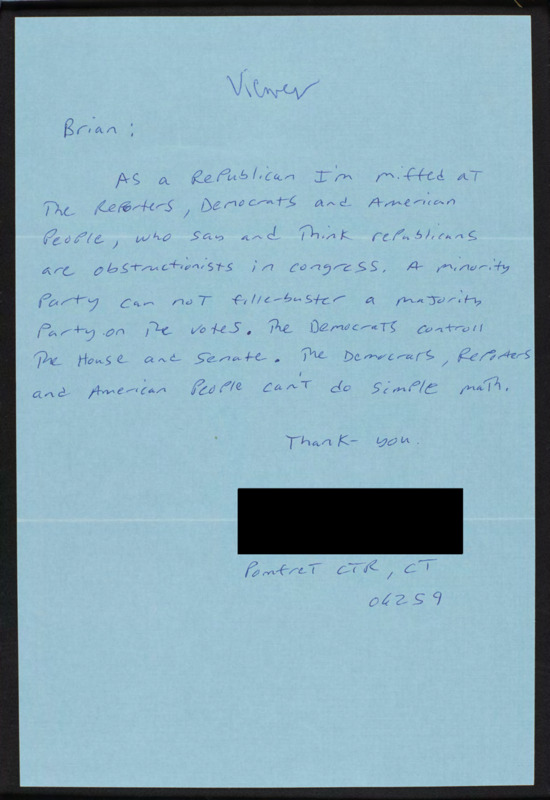 Viewer
Brian:
As a Republican I'm miffed at
The Reporters, Democrats and American
People, who say and Think republicans
are obstructionists in congress. A minority
Party can not fillerbuster a majority
Party on The votes. The Democrats controll
The House and Senate. The Democrats, Reporters
and American People can't do simple math.
Thank-you.
Pomfret CTR, CT
06259